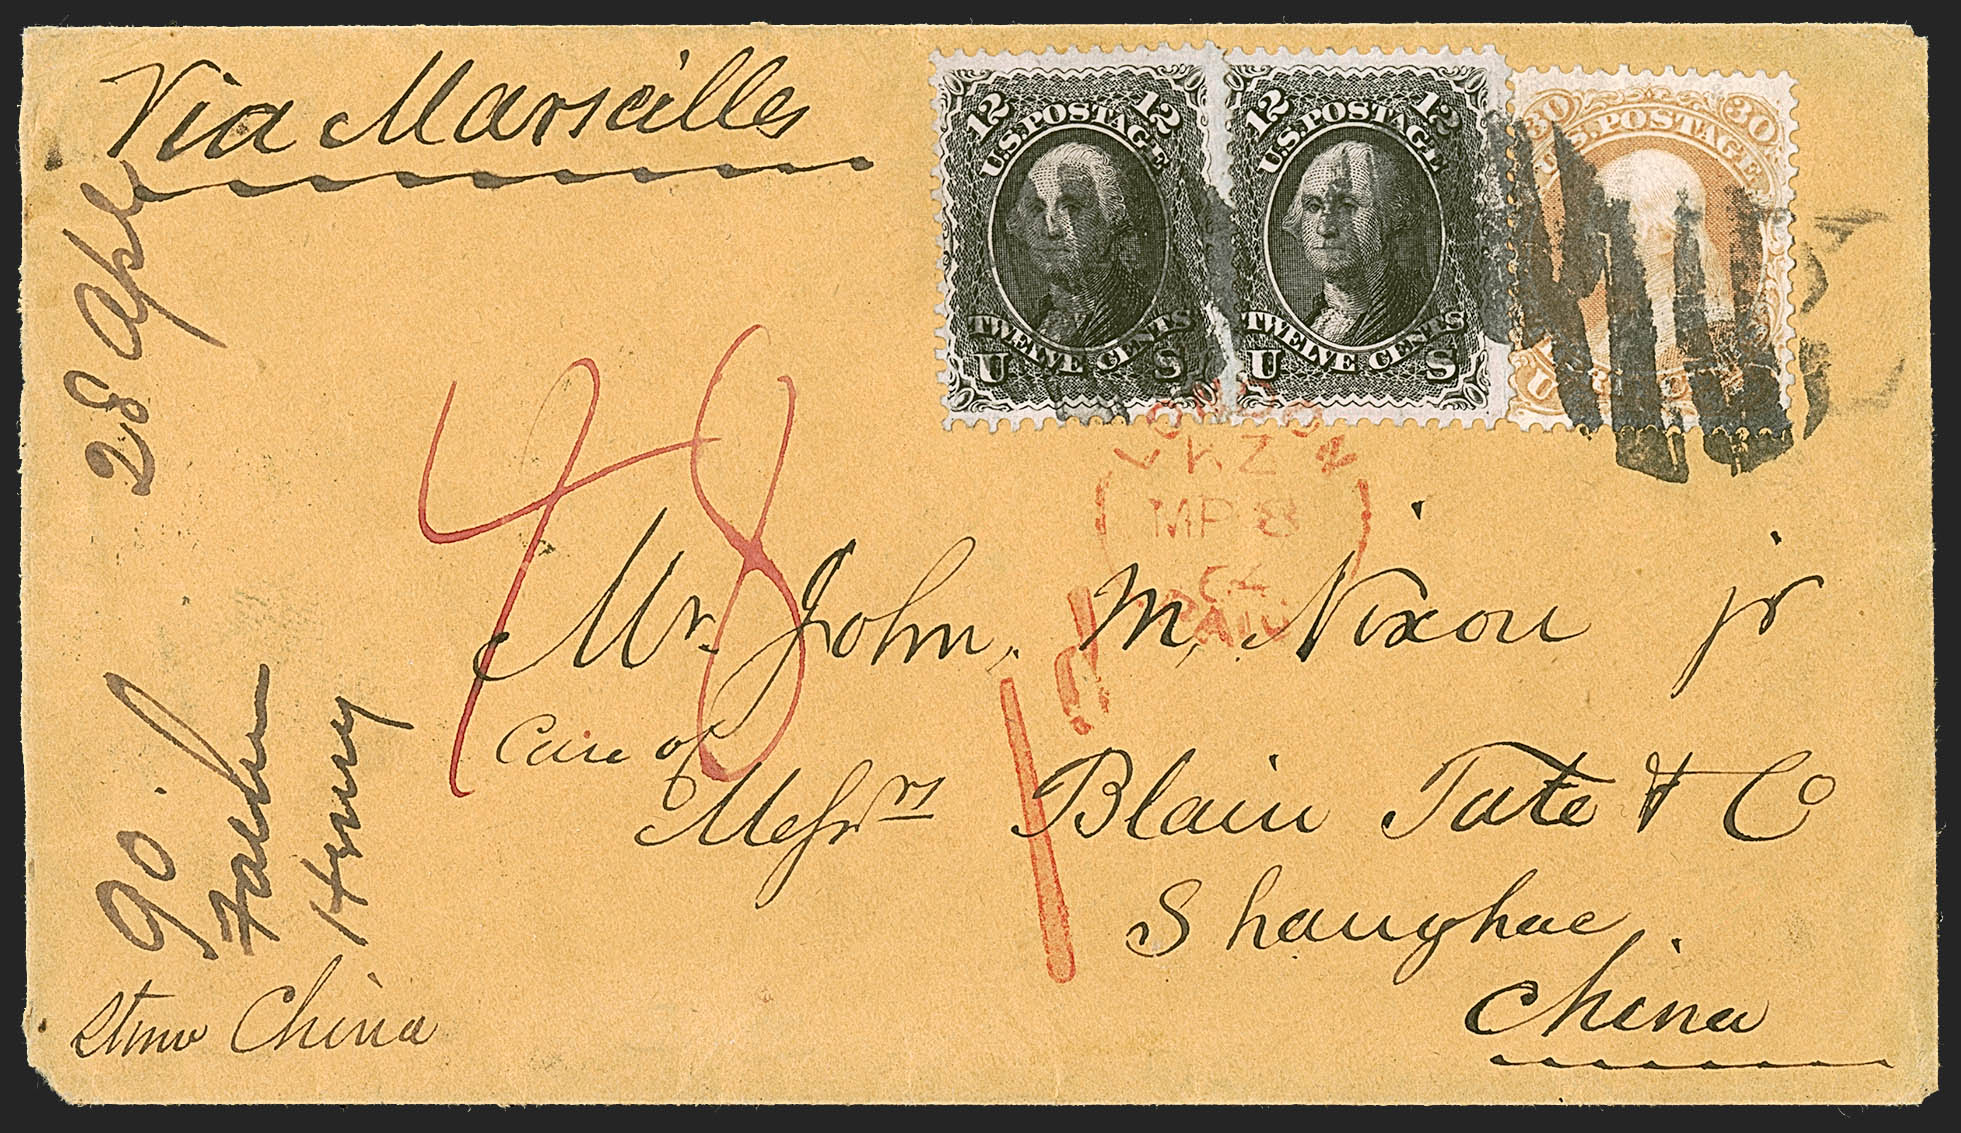 Via Marseilles
12 12
U.S. POSTAGE
TWELVE CENTS
U S
12 12
U.S. POSTAGE
TWELVE CENTS
U S
30 30
U.S. POSTAGE
U
28 Apl
48
MR 8
PAID
Mr. John, M, Nixon jr
Care of
Messrs Blain Tate & Co
Shanghae.
China
90
Henry
China